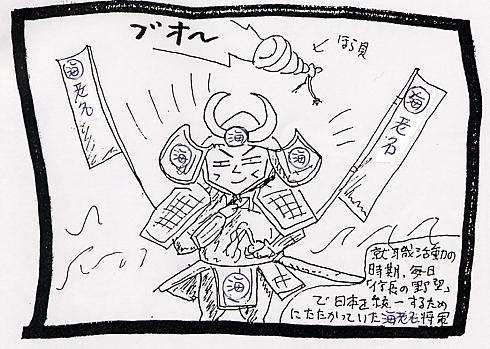 ブオ〜
ほら貝
海
老
名
海
老
名
海
海
海
海
就職活動の
時期、毎日
「信長の野望」
で日本を統一するため
にたたかっていた海老名将軍